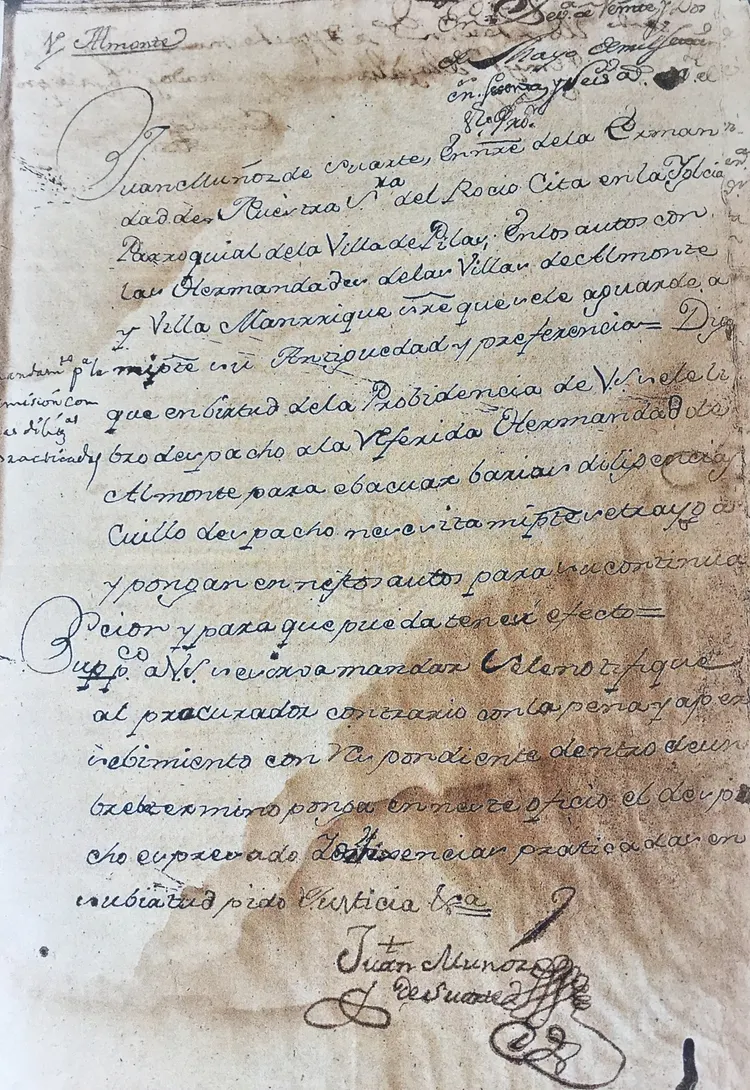 Vª Almonte
en Sevª a Veinte y Dos
de Mayo de mil Setecⁿ
sesenta y Seis aˢ
Juan Muñoz de Suarte, En nr̃e dela Erman
dad de Nuestra S.ra del Rocio Cita en la Yglcia
Parroquial dela Villa de Pilas; En los autos con
las Hermandades delas Villas de Almonte
y Villa Manrrique sr̃e que se le aguarde, a
mi pt̃e su Antiguedad y preferencia = Digo
mandamtº pª la
remisión con
las diligas
practicadas
que en birtud dela Probidencia de V.S. se le li
bro despacho ala Referida Hermandad de
Almonte para ebacuar barias diligencias
Cuillo despacho nescesita mi pt̃e se traygã
y pongan en nestos autos para su continua
cion y para que pueda tener efecto =
Supp.co a V.S. se sirva mandar Se le notifique
al procurador contrario con la pena y aper
sebimiento con Respondiente dentro de un
brebe termino ponga en neste oficio el despa
cho espresado diligencias praticadas en
su birtud pido Justicia &ª
Juan Muñoz
de Suarte